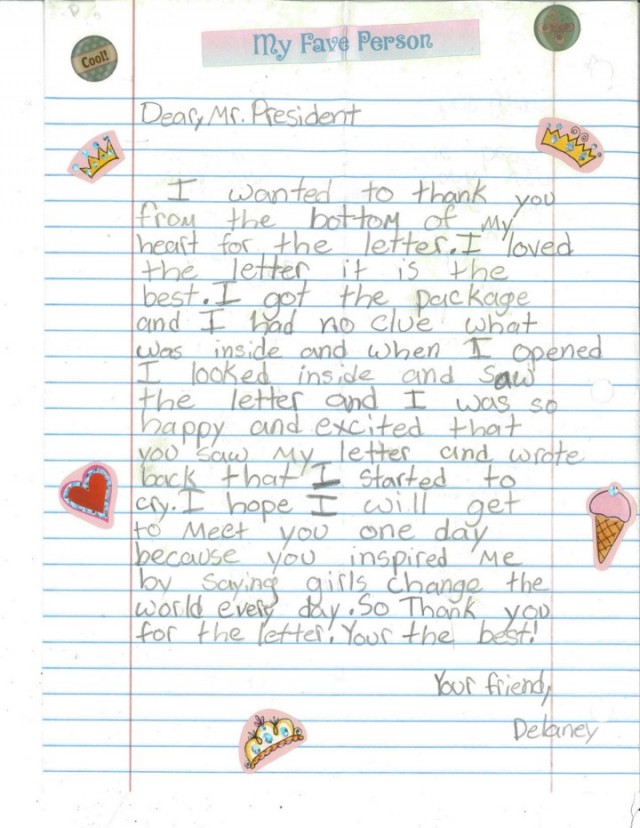 My Fave Person
Cool!
Dear, Mr. President
I wanted to thank you
from the bottom of my
heart for the letter. I loved
the letter it is the
best. I got the package
and I had no clue what
was inside and when I opened
I looked inside and saw
the letter and I was so
happy and excited that
you saw my letter and wrote
back that I started to
cry. I hope I will get
to meet you one day
because you inspired me
by saying girls change the
world every day. So Thank you
for the letter. Your the best!
Your friend,
Delaney